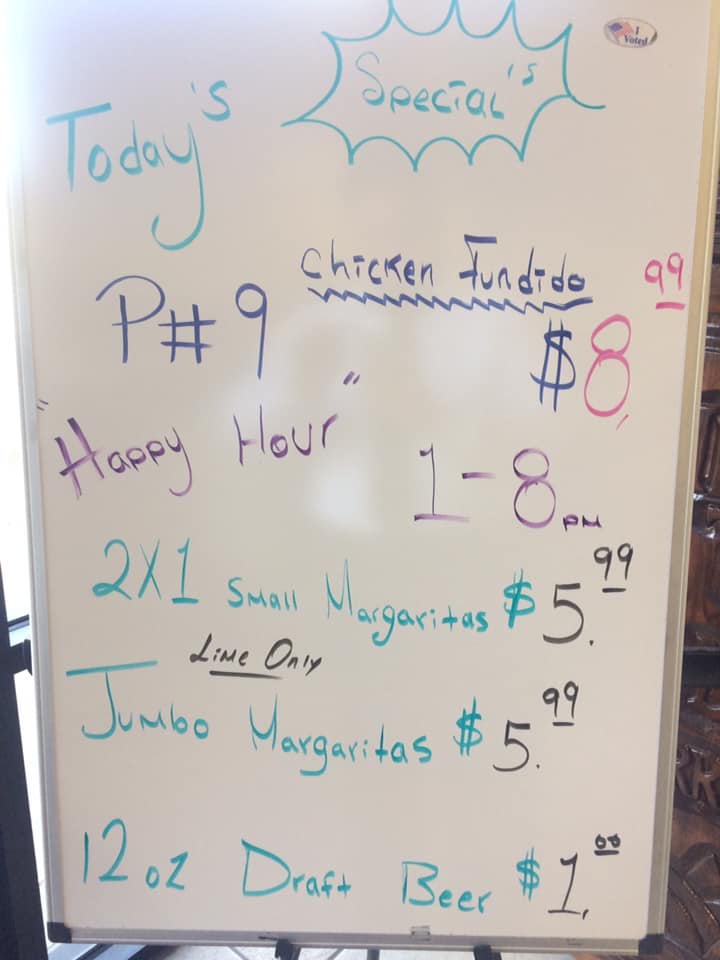 I Voted
Today's Special's
P#9 Chicken Fundido $8.99
"Happy Hour" 1-8 PM
2X1 Small Margaritas $5.99
Lime Only
Jumbo Margaritas $5.99
12 oz Draft Beer $1.00